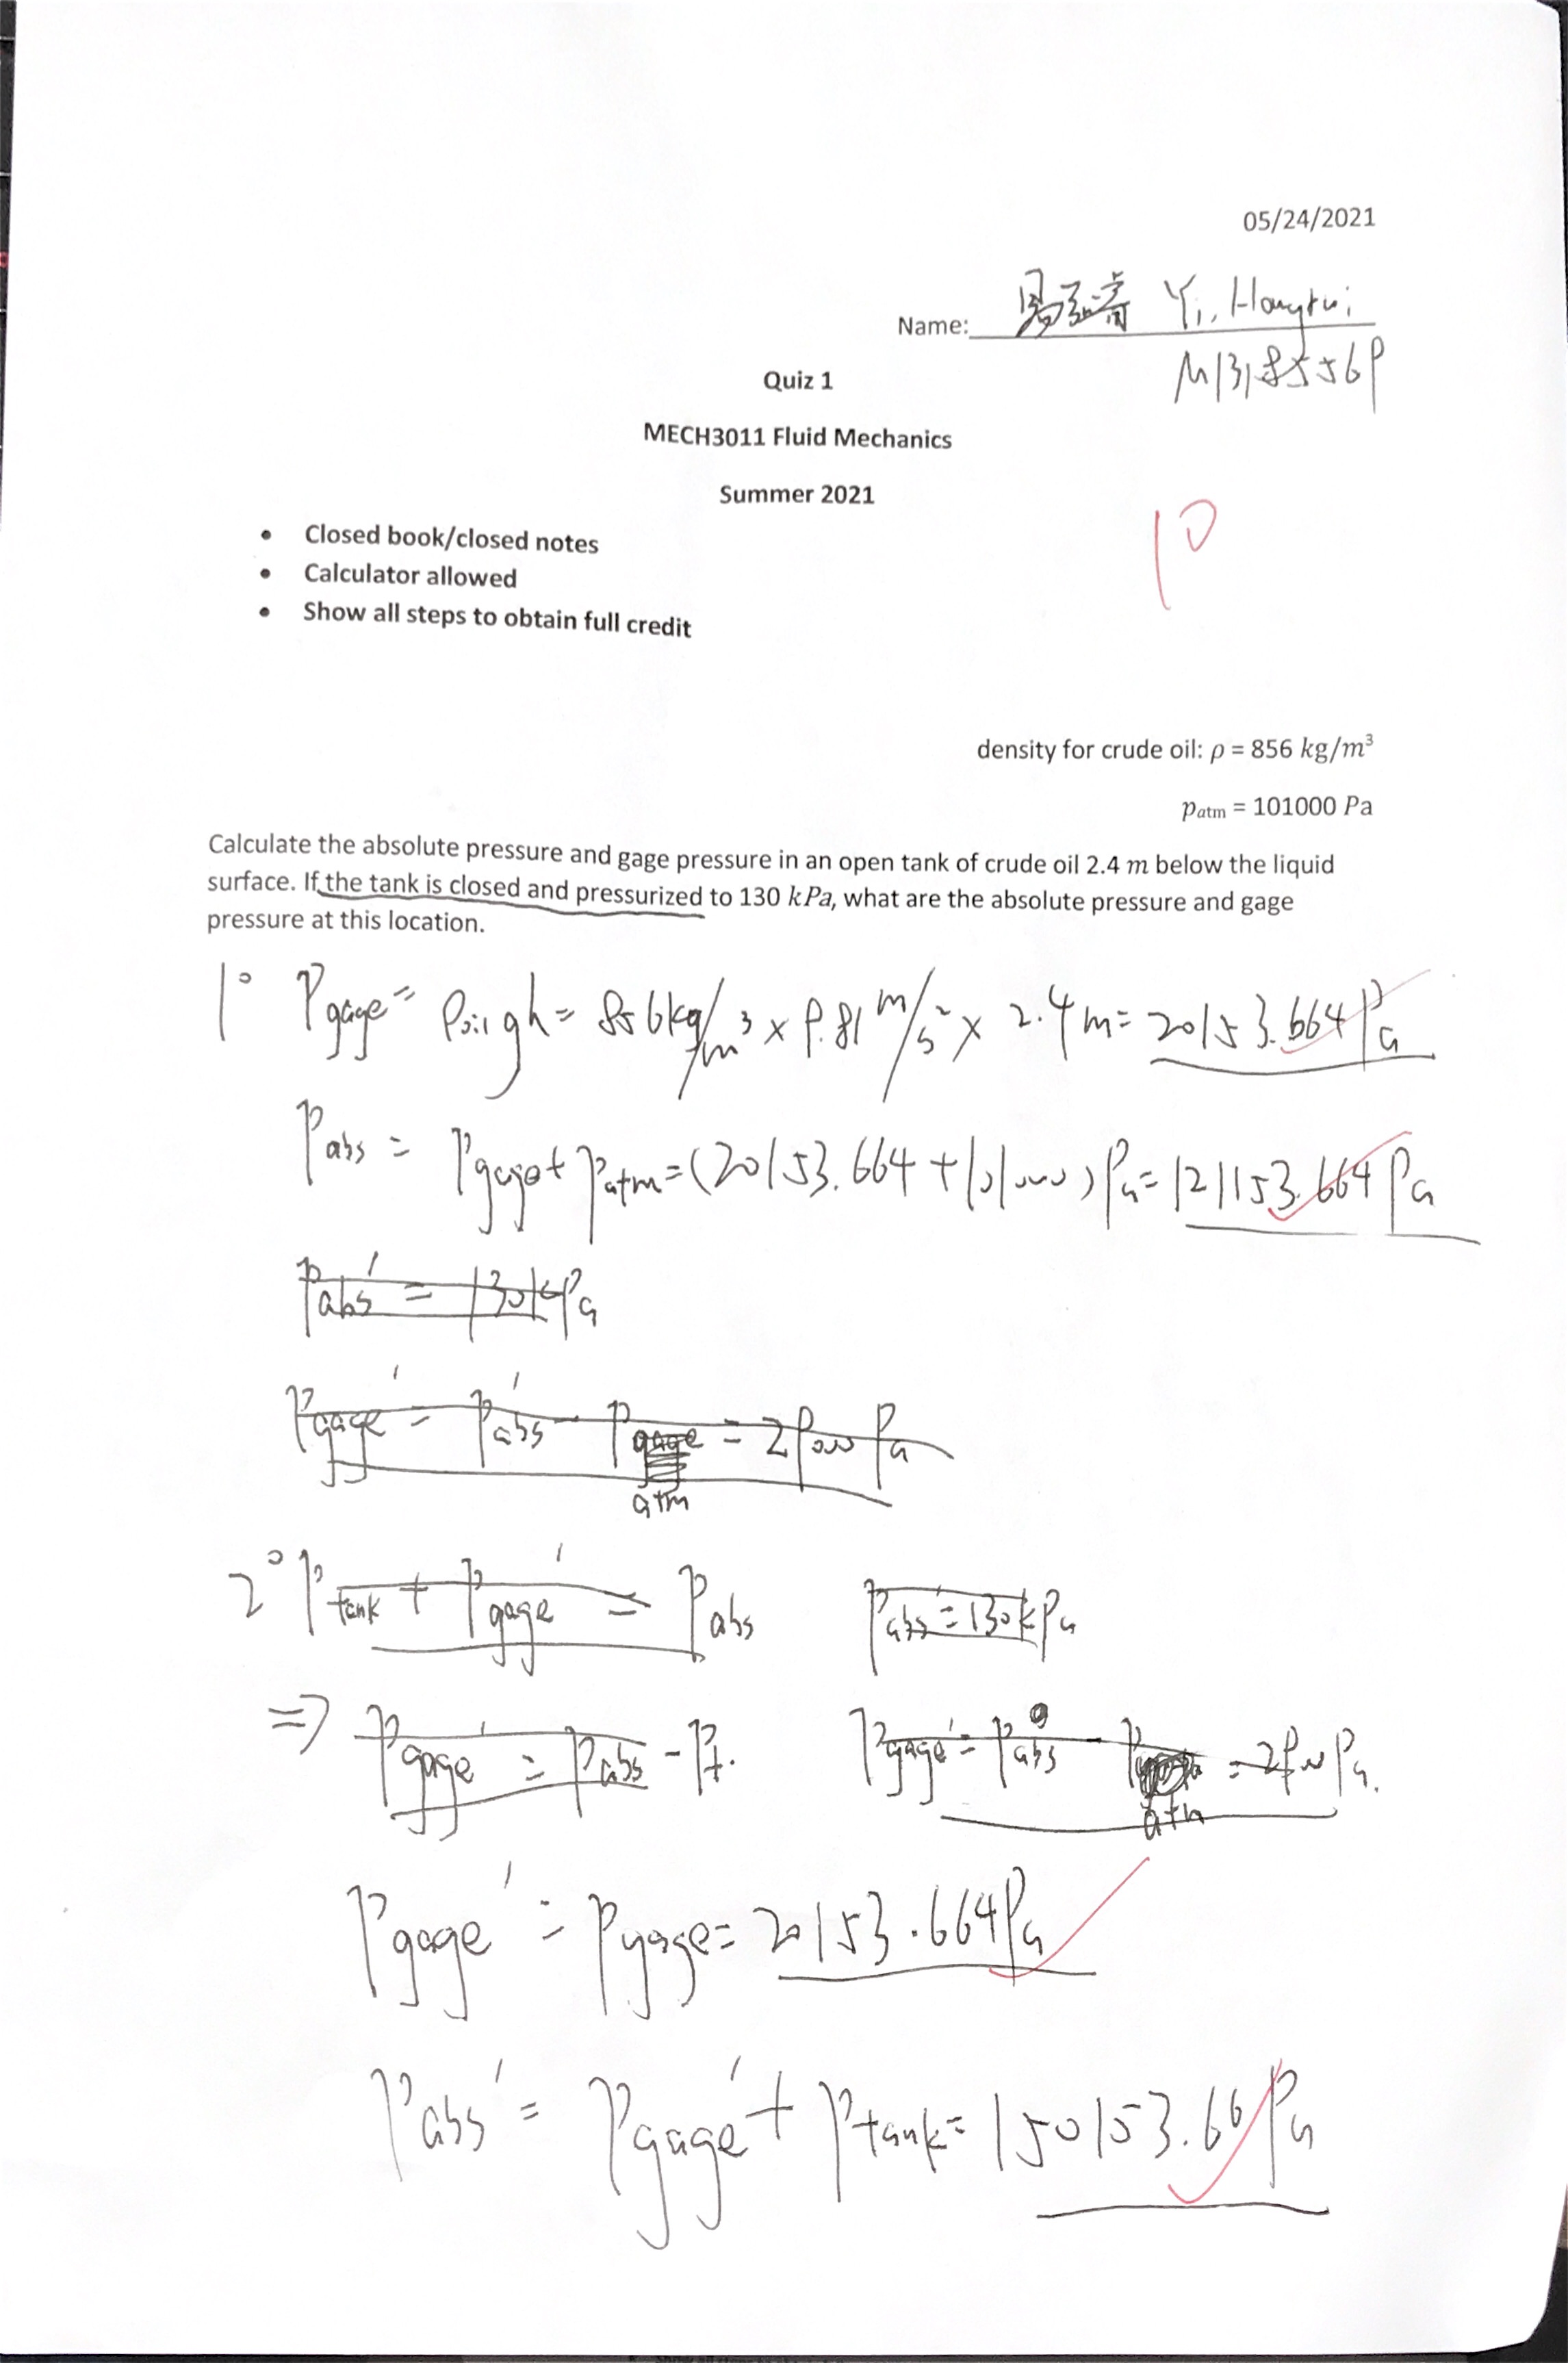 05/24/2021
Name: 易弘睿 Yi, Hongrui
Quiz 1
MECH3011 Fluid Mechanics
Summer 2021
10
• Closed book/closed notes
• Calculator allowed
• Show all steps to obtain full credit
density for crude oil: ρ = 856 kg/m³
patm = 101000 Pa
Calculate the absolute pressure and gage pressure in an open tank of crude oil 2.4 m below the liquid
surface. If the tank is closed and pressurized to 130 kPa, what are the absolute pressure and gage
pressure at this location.
1° Pgage = ρoil gh = 856 kg/m³ × 9.81 m/s² × 2.4 m = 20153.664 Pa
Pabs = Pgage + Patm = (20153.664 + 101000) Pa = 121153.664 Pa
Pabs' = 130 kPa
Pgage' = Pabs' - Patm = 29000 Pa
2° Ptank + Pgage' = Pabs Pabs' = 130 kPa
⇒ Pgage' = Pabs - Pt. Pgage' = Pabs - Patm = 29000 Pa.
Pgage' = Pgage = 20153.664 Pa
Pabs' = Pgage' + Ptank = 150153.66 Pa